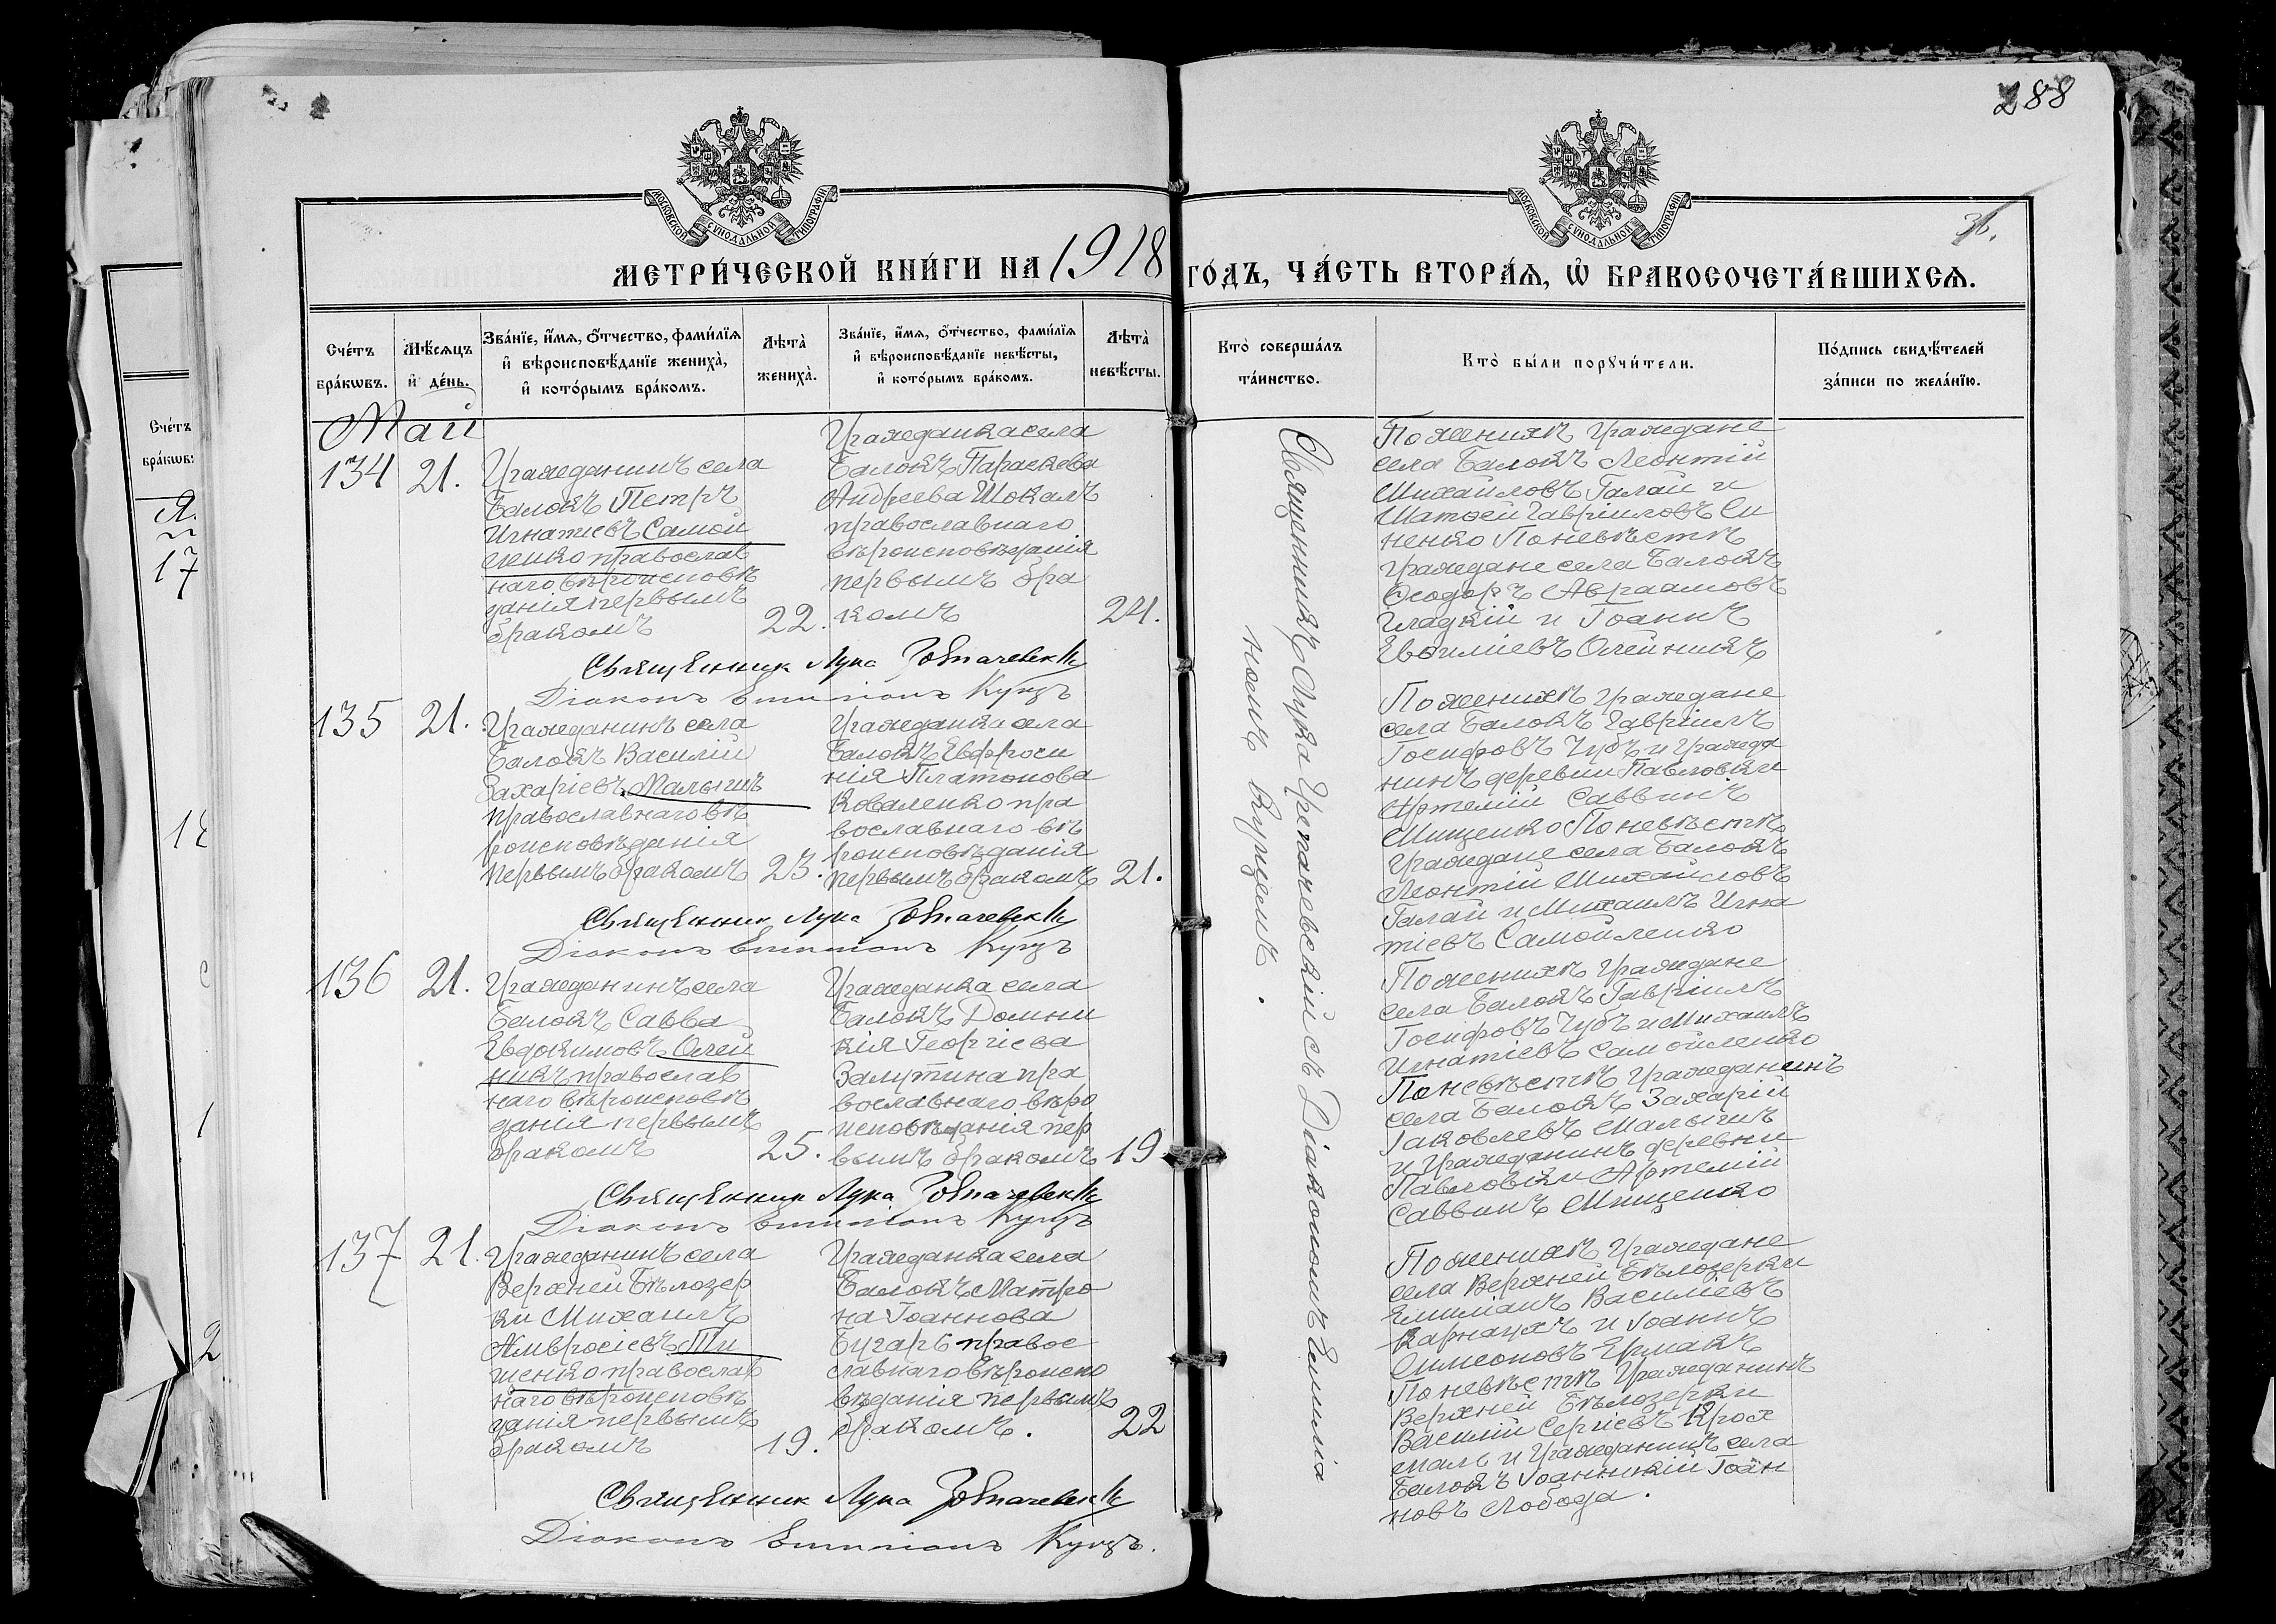 288
36.
МОСКОВСКОЙ СѴНОДАЛЬНОЙ ТИПОГРАФІИ
МОСКОВСКОЙ СѴНОДАЛЬНОЙ ТИПОГРАФІИ
МЕТРИ́ЧЕСКОЙ КНИ́ГИ НА 1918 ГО́ДЪ, ЧА́СТЬ ВТОРА́Я, Ѡ҆ БРАКОСОЧЕТА́ВШИХСЯ.
Сче́тъ
бра́кѡвъ.
Мѣ́сяцъ
и҆ де́нь.
Зва́нїе, и҆́мя, ѻ҆́тчество, фами́лїя
и҆ вѣроисповѣ́данїе жениха̀,
и҆ кото́рымъ бра́комъ.
Лѣ́та
жениха̀.
Зва́нїе, и҆́мя, ѻ҆́тчество, фами́лїя
и҆ вѣроисповѣ́данїе невѣ́сты,
и҆ кото́рымъ бра́комъ.
Лѣ́та
невѣ́сты.
Кто̀ соверша́лъ
та́инство.
Кто̀ бы́ли порꙋчи́тели.
По́дпись свидѣ́телей
за́писи по жела́нїю.
Май
134
21.
Гражданинъ села
Балокъ Петръ
Игнатіевъ Самой
ленко православ
наго вѣроисповѣ
данія первымъ
бракомъ
22.
Гражданка села
Балокъ Параскева
Андреева Шокалъ
православнаго
вѣроисповѣданія
первымъ бра
комъ
21.
По женихѣ граждане
села Балокъ Леонтій
Михайловъ Галай и
Матѳей Гавріиловъ Си
ненко По невѣстѣ
граждане села Балокъ
Ѳеодоръ Авраамовъ
Гладкій и Іоаннъ
Евѳиміевъ Олейникъ
Священникъ Лука
Діаконъ Емиліанъ Купцъ
135
21.
Гражданинъ села
Балокъ Василій
Захаріевъ Малышъ
православнаго вѣ
роисповѣданія
первымъ бракомъ
23.
Гражданка села
Балокъ Евфроси
нія Платонова
Коваленко пра
вославнаго вѣ
роисповѣданія
первымъ бракомъ
21.
По женихѣ граждане
села Балокъ Гавріилъ
Іосифовъ Чубъ и гражда
нинъ деревни Павловки
Артемій Саввинъ
Мищенко По невѣстѣ
граждане села Балокъ
Леонтій Михайловъ
Галай и Михаилъ Игна
тіевъ Самойленко
Священник Лука
Діаконъ Емиліанъ Купцъ
136
21.
Гражданинъ села
Балокъ Савва
Евдокимовъ Олей
никъ православ
наго вѣроисповѣ
данія первымъ
бракомъ
25.
Гражданка села
Балокъ Домни
кія Георгіева
Залутина пра
вославнаго вѣро
исповѣданія пер
вымъ бракомъ
19.
По женихѣ граждане
села Балокъ Гавріилъ
Іосифовъ Чубъ и Михаилъ
Игнатіевъ Самойленко
По невѣстѣ гражданинъ
села Балокъ Захарій
Іаковлевъ Малышъ
и гражданинъ деревни
Павловки Артемій
Саввинъ Мищенко
Священник Лука
Діаконъ Емиліанъ Купцъ
137
21.
Гражданинъ села
Верхней Бѣлозер
ки Михаилъ
Амвросіевъ Ти
шенко православ
наго вѣроисповѣ
данія первымъ
бракомъ
19.
Гражданка села
Балокъ Матро
на Іоаннова
Бугарь правос
лавнаго вѣроиспо
вѣданія первымъ
бракомъ.
22
По женихѣ граждане
села Верхней Бѣлозерки
Емиліанъ Василіевъ
Карнаухъ и Іоаннъ
Симеоновъ Ермакъ
По невѣстѣ гражданинъ
Верхней Бѣлозерки
Василій Сергіевъ Крох
маль и гражданинъ села
Балокъ Іоанникій Іоан
новъ Лобода.
Священник Лука
Діаконъ Емиліанъ Купцъ.
Священникъ Лука съ Діакономъ Емиліа
номъ Купцемъ.
Сче́тъ
бра́кѡвъ
17
1
2